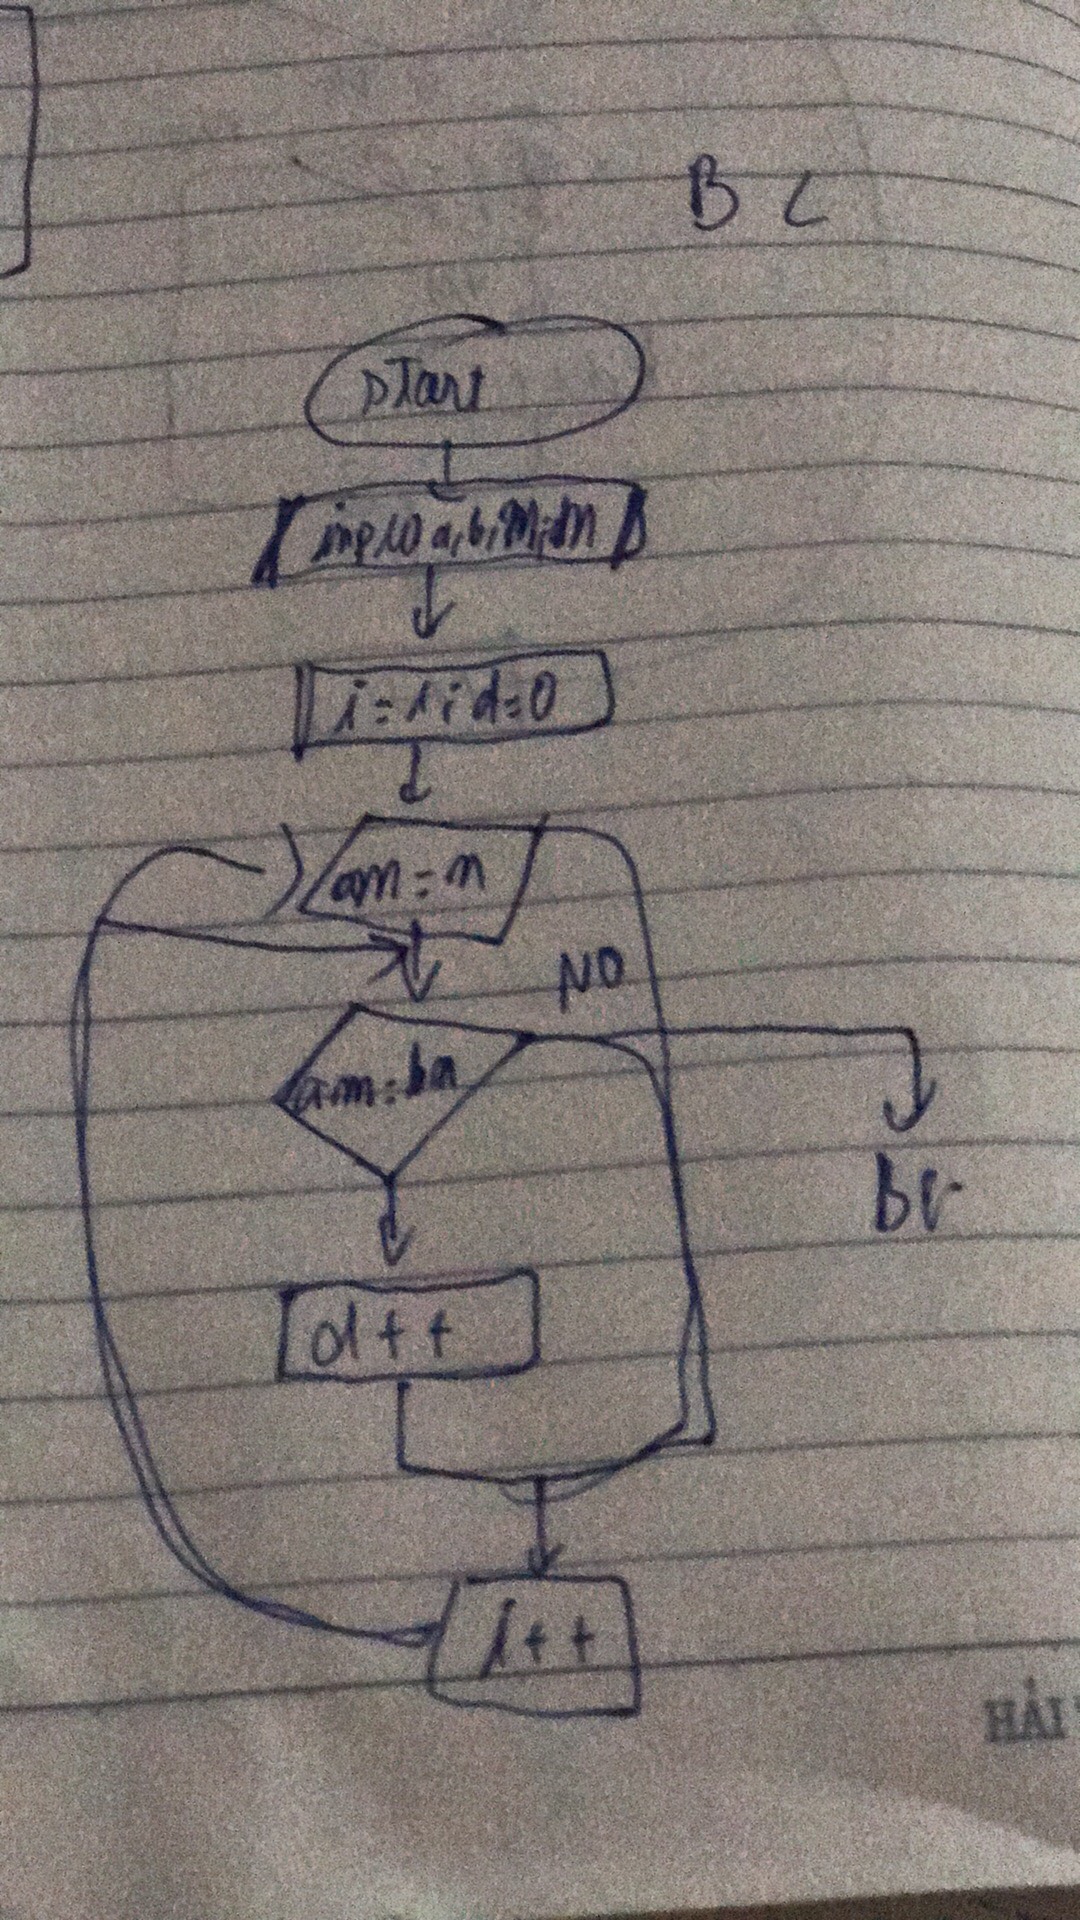 B C
start
input a,b,m,n
i=1; d=0
am=n
NO
am=bn
br
d++
i++
HẢI